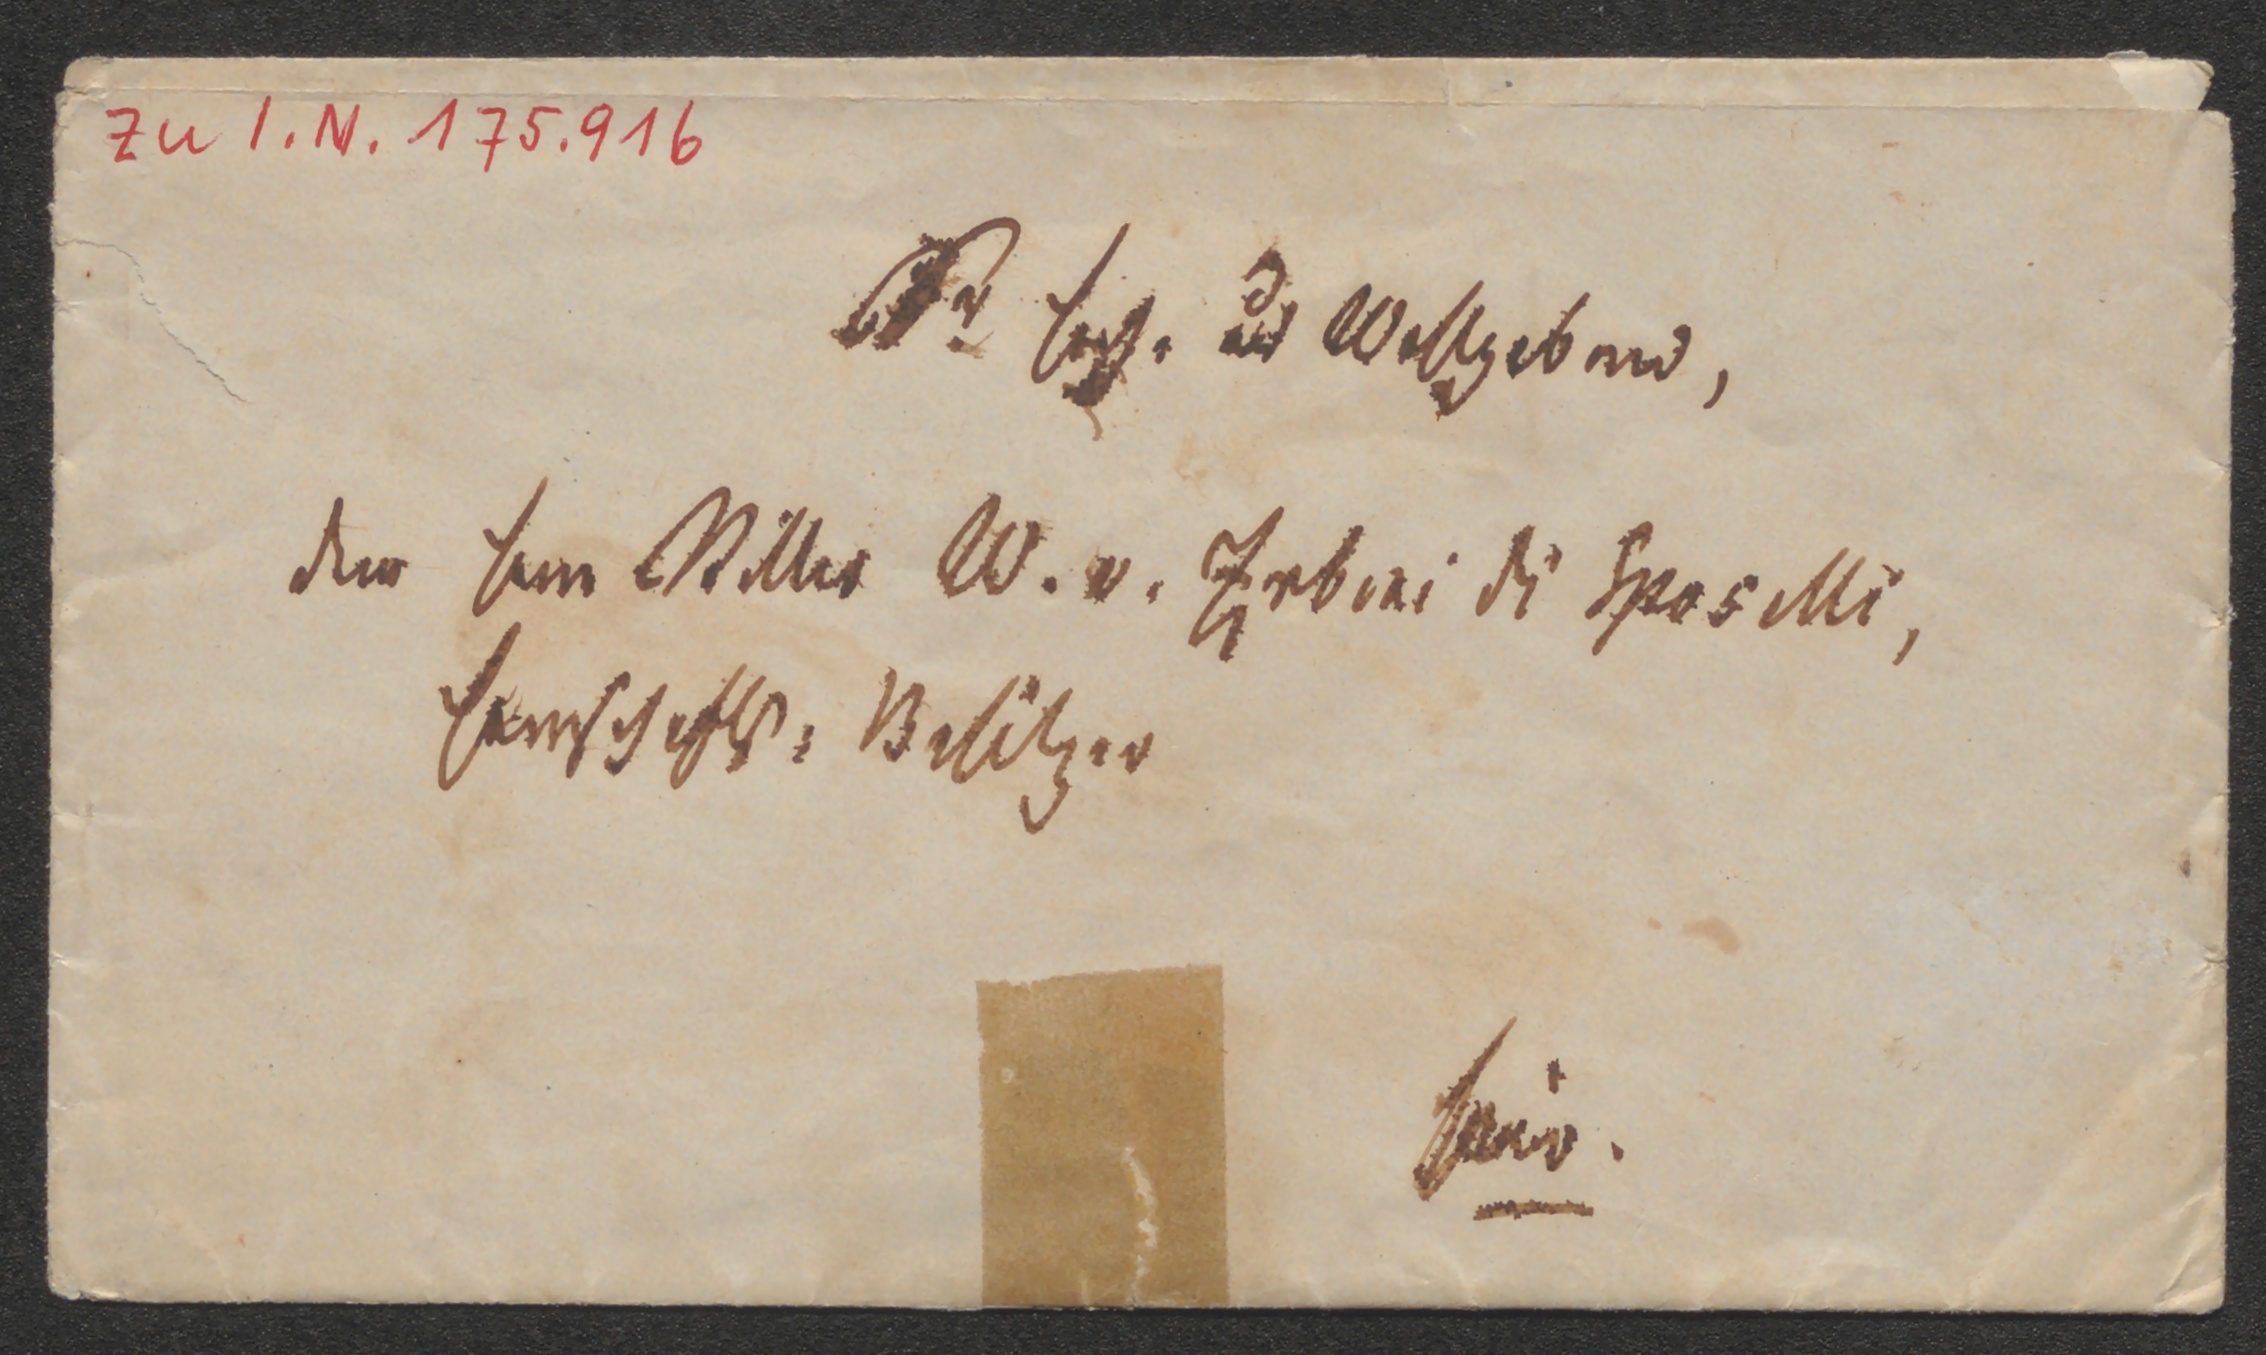 Zu I.N. 175.916
Sr Hoch. und Wohlgeborn,
dem Herrn Ritter W. v. Zerboni di Sposetti,
Herrschafts-Besitzer
hier.